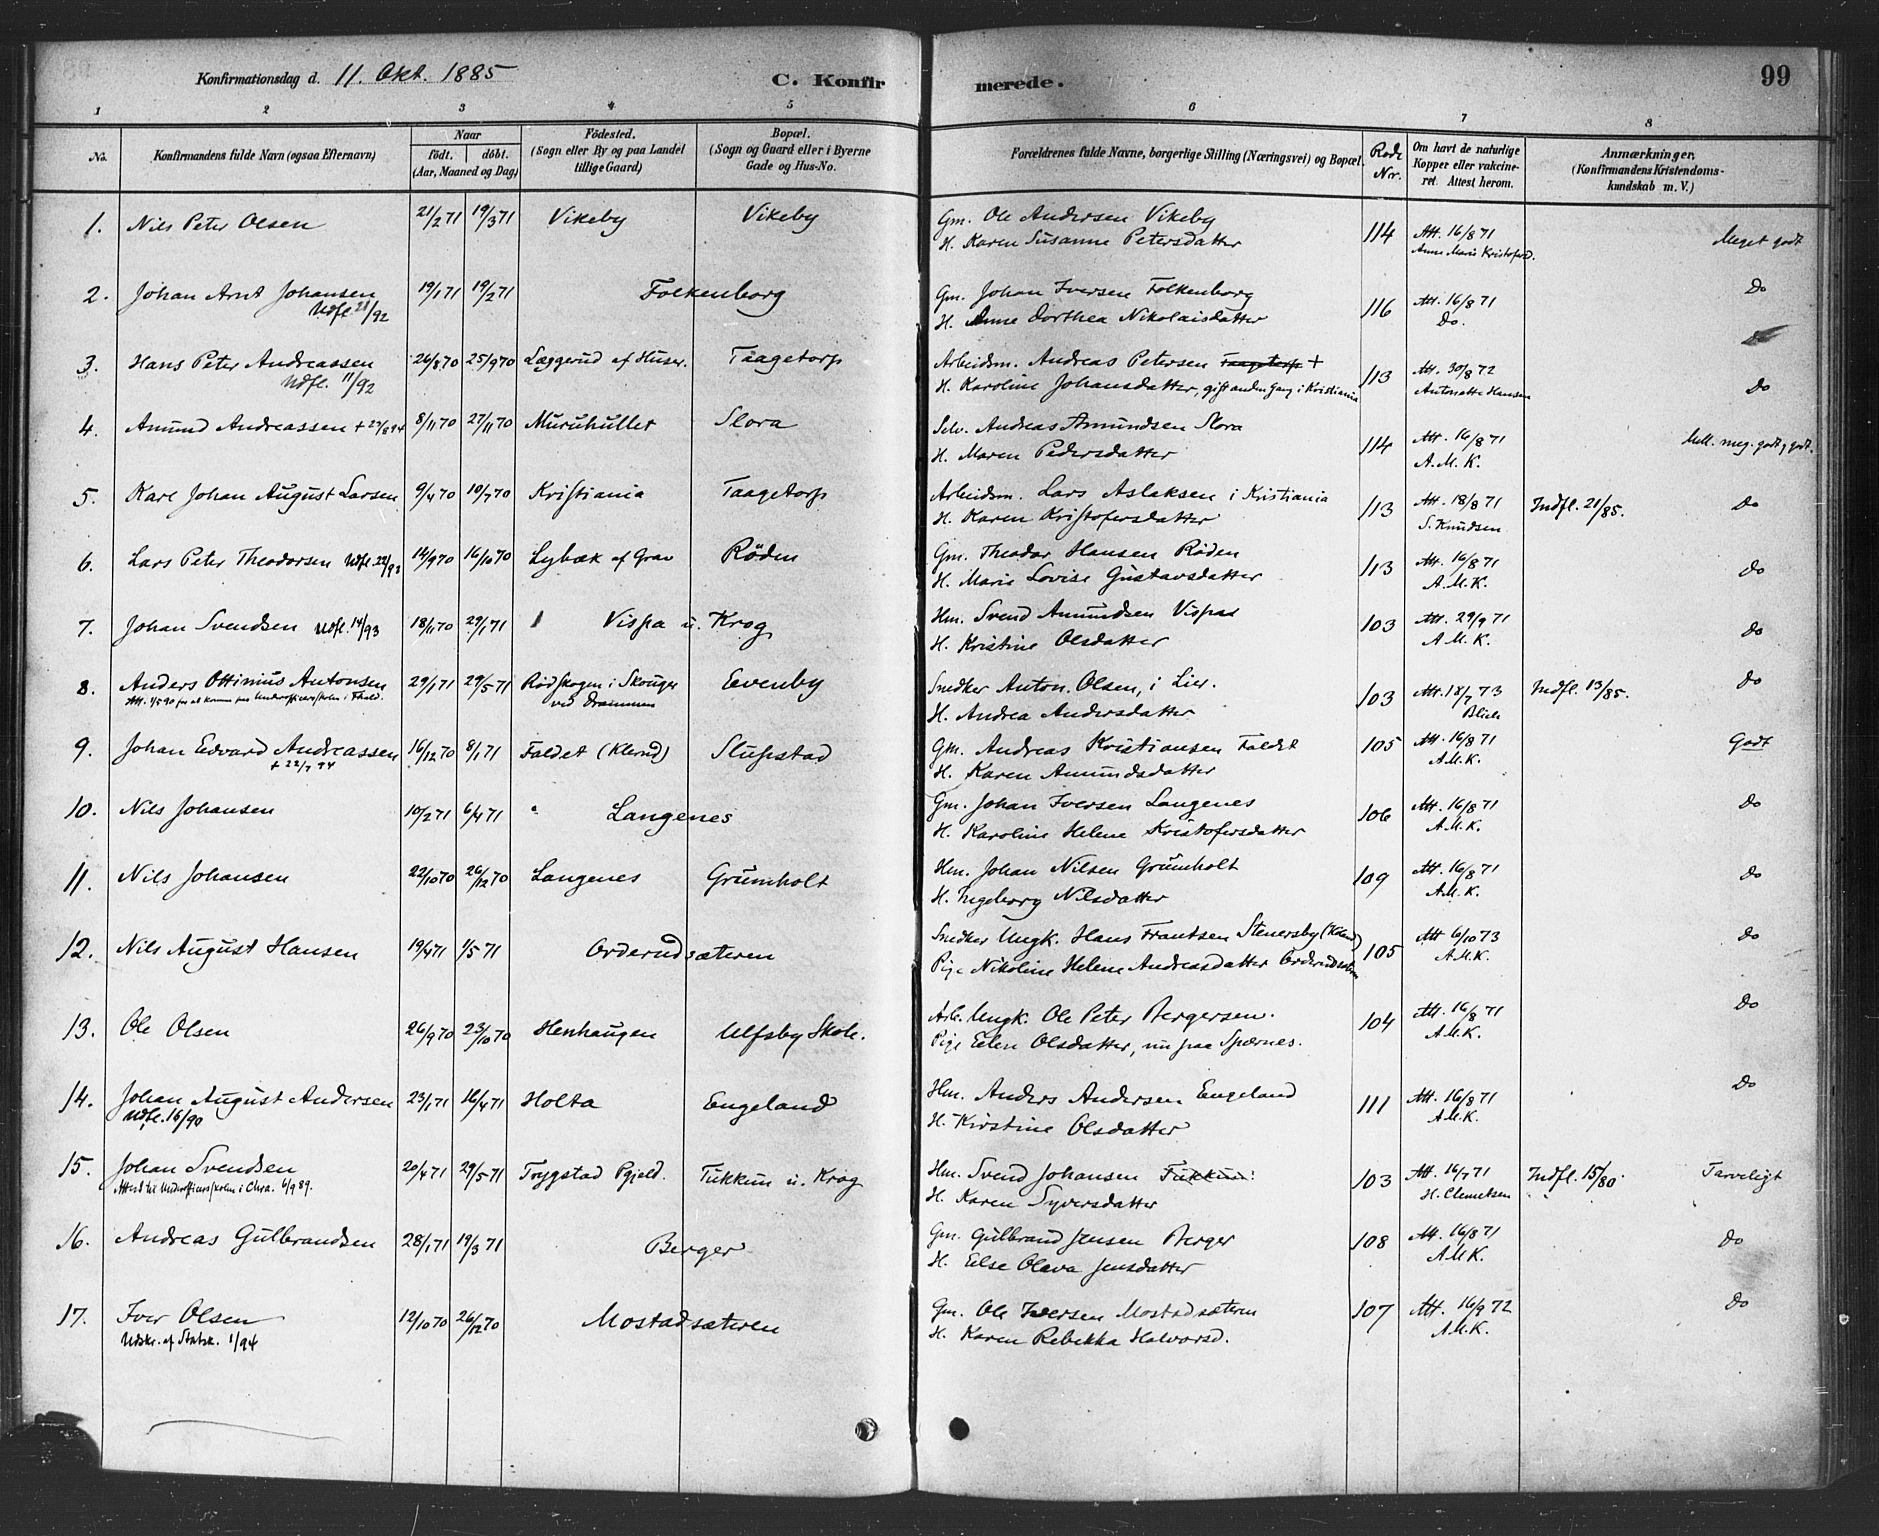 Konfirmationsdag d. 11. Okt. 1885
C. Konfirmerede.
99
1 2 3 4 5 6 7 8
No.
Konfirmandens fulde Navn (ogsaa Efternavn)
Naar
födt. döbt.
(Aar, Maaned og Dag)
Födested.
(Sogn eller By og paa Landet
tillige Gaard)
Bopæl.
(Sogn og Gaard eller i Byerne
Gade og Hus-No.
Forældrenes fulde Navne, borgerlige Stilling (Næringsvei) og Bopæl.
Rode
Nr.
Om havt de naturlige
Kopper eller vakcine-
ret. Attest herom.
Anmærkninger.
(Konfirmandens Kristendoms-
kundskab m. V.)
1. Nils Peter Olsen 21/2 71 19/3 71 Vikeby Vikeby Gm. Ole Andersen Vikeby 114 Att. 16/8 71 Meget godt
H. Karen Susanne Petersdatter Anne Marie Kristofersd.
2. Johan Arnt Johansen 19/1 71 19/2 71 Folkenborg Gm. Johan Iversen Folkenborg 116 Att. 16/8 71 Do
Udfl. 21/92 H. Anne Dorthea Nikolaisdatter Do.
3. Hans Peter Andreassen 26/8 70 25/9 70 Læggerud af Huser. Taagetorp Arbeidsm. Andreas Petersen Taagetorp + 113 Att. 30/8 72 Do
Udfl. 11/92 H. Karoline Johansdatter, gift anden Gang i Kristiania Antonette Hansen
4. Amund Andreassen + 23/8 94 8/11 70 27/11 70 Muruhullet Slora Selv. Andreas Amundsen Slora 114 Att. 16/8 71 Mell. meg. godt, godt.
H. Maren Pedersdatter A. M. K.
5. Karl Johan August Larsen 9/4 70 10/7 70 Kristiania Taagetorp Arbeidsm. Lars Aslaksen i Kristiania 113 Att. 18/8 71 Indfl. 21/85. Do
H. Karen Kristofersdatter S. Knudsen
6. Lars Peter Theodorsen Udfl. 22/92 14/9 70 16/10 70 Lybæk af Grav Röden Gm. Theodor Hansen Röden 113 Att. 16/8 71 Do
H. Marie Lovise Gustavsdatter A. M. K.
7. Johan Svendsen Udfl. 14/93 18/11 70 29/1 71 Vispa u. Krog Hm. Svend Amundsen Vispa 103 Att. 29/9 71 Do
H. Kristine Olsdatter A. M. K.
8. Anders Ottinius Antonsen 29/1 71 29/5 71 Rödskogen i Skouger Evenby Snedker Anton Olsen, i Lier. 103 Att. 18/7 73 Indfl. 13/85. Do
Att. 1/5 90 for at komme paa Underofficersskolen i Fhald. ved Drammen H. Andrea Andersdatter Blich
9. Johan Edvard Andreassen 16/12 70 8/1 71 Faldet (Klerud) Slupstad Gm. Andreas Kristiansen Faldet 105 Att. 16/8 71 Godt
+ 22/7 94 H. Karen Amundsdatter A. M. K.
10. Nils Johansen 10/2 71 6/4 71 Langenes Gm. Johan Iversen Langenes 106 Att. 16/8 71 Do
H. Karoline Helene Kristofersdatter A. M. K.
11. Nils Johansen 22/10 70 26/12 70 Langenes Grumholt Hm. Johan Nilsen Grumholt 109 Att. 16/8 71 Do
H. Ingeborg Nilsdatter A. M. K.
12. Nils August Hansen 19/4 71 1/5 71 Orderudsæteren Snedker Ungk. Hans Frantsen Stenersby 105 Att 6/10 73 Do
Pige Nikoline Helene Andreasdatter Orderudsætren A. M. K.
13. Ole Olsen 26/9 70 23/10 70 Henhaugen Ulfsby Skole. Arb. Ungk. Ole Peter Bergersen. 104 Att. 16/8 71 Do
Pige Elen Olsdatter, nu paa Spærnes. A. M. K.
14. Johan August Andersen 23/1 71 16/4 71 Holta Engeland Hm. Anders Andersen Engeland 111 Att. 16/8 71 Do
Udfl. 16/90 H. Kirstine Olsdatter A. M. K.
15. Johan Svendsen 20/4 71 29/5 71 Trygstad Pgjeld. Tukkum u. Krog Hm. Svend Johansen Tukkum 103 Att. 16/7 71 Indfl. 15/80. Tarveligt
Attest til Underofficersskolen i Chra. 6/9 89. H. Karen Syversdatter H. Clemetsen
16. Andreas Gulbrandsen 28/1 71 19/3 71 Berger Gm. Gulbrand Jensen Berger 108 Att. 16/8 71 Do
H. Else Olava Jensdatter A. M. K.
17. Iver Olsen 12/10 70 26/12 70 Mostadsæteren Gm. Ole Iversen Mostadsæteren 107 Att. 16/9 72 Do
Udskr. af Statsk. 1/94 H. Karen Rebekka Halvorsd. A. M. K.